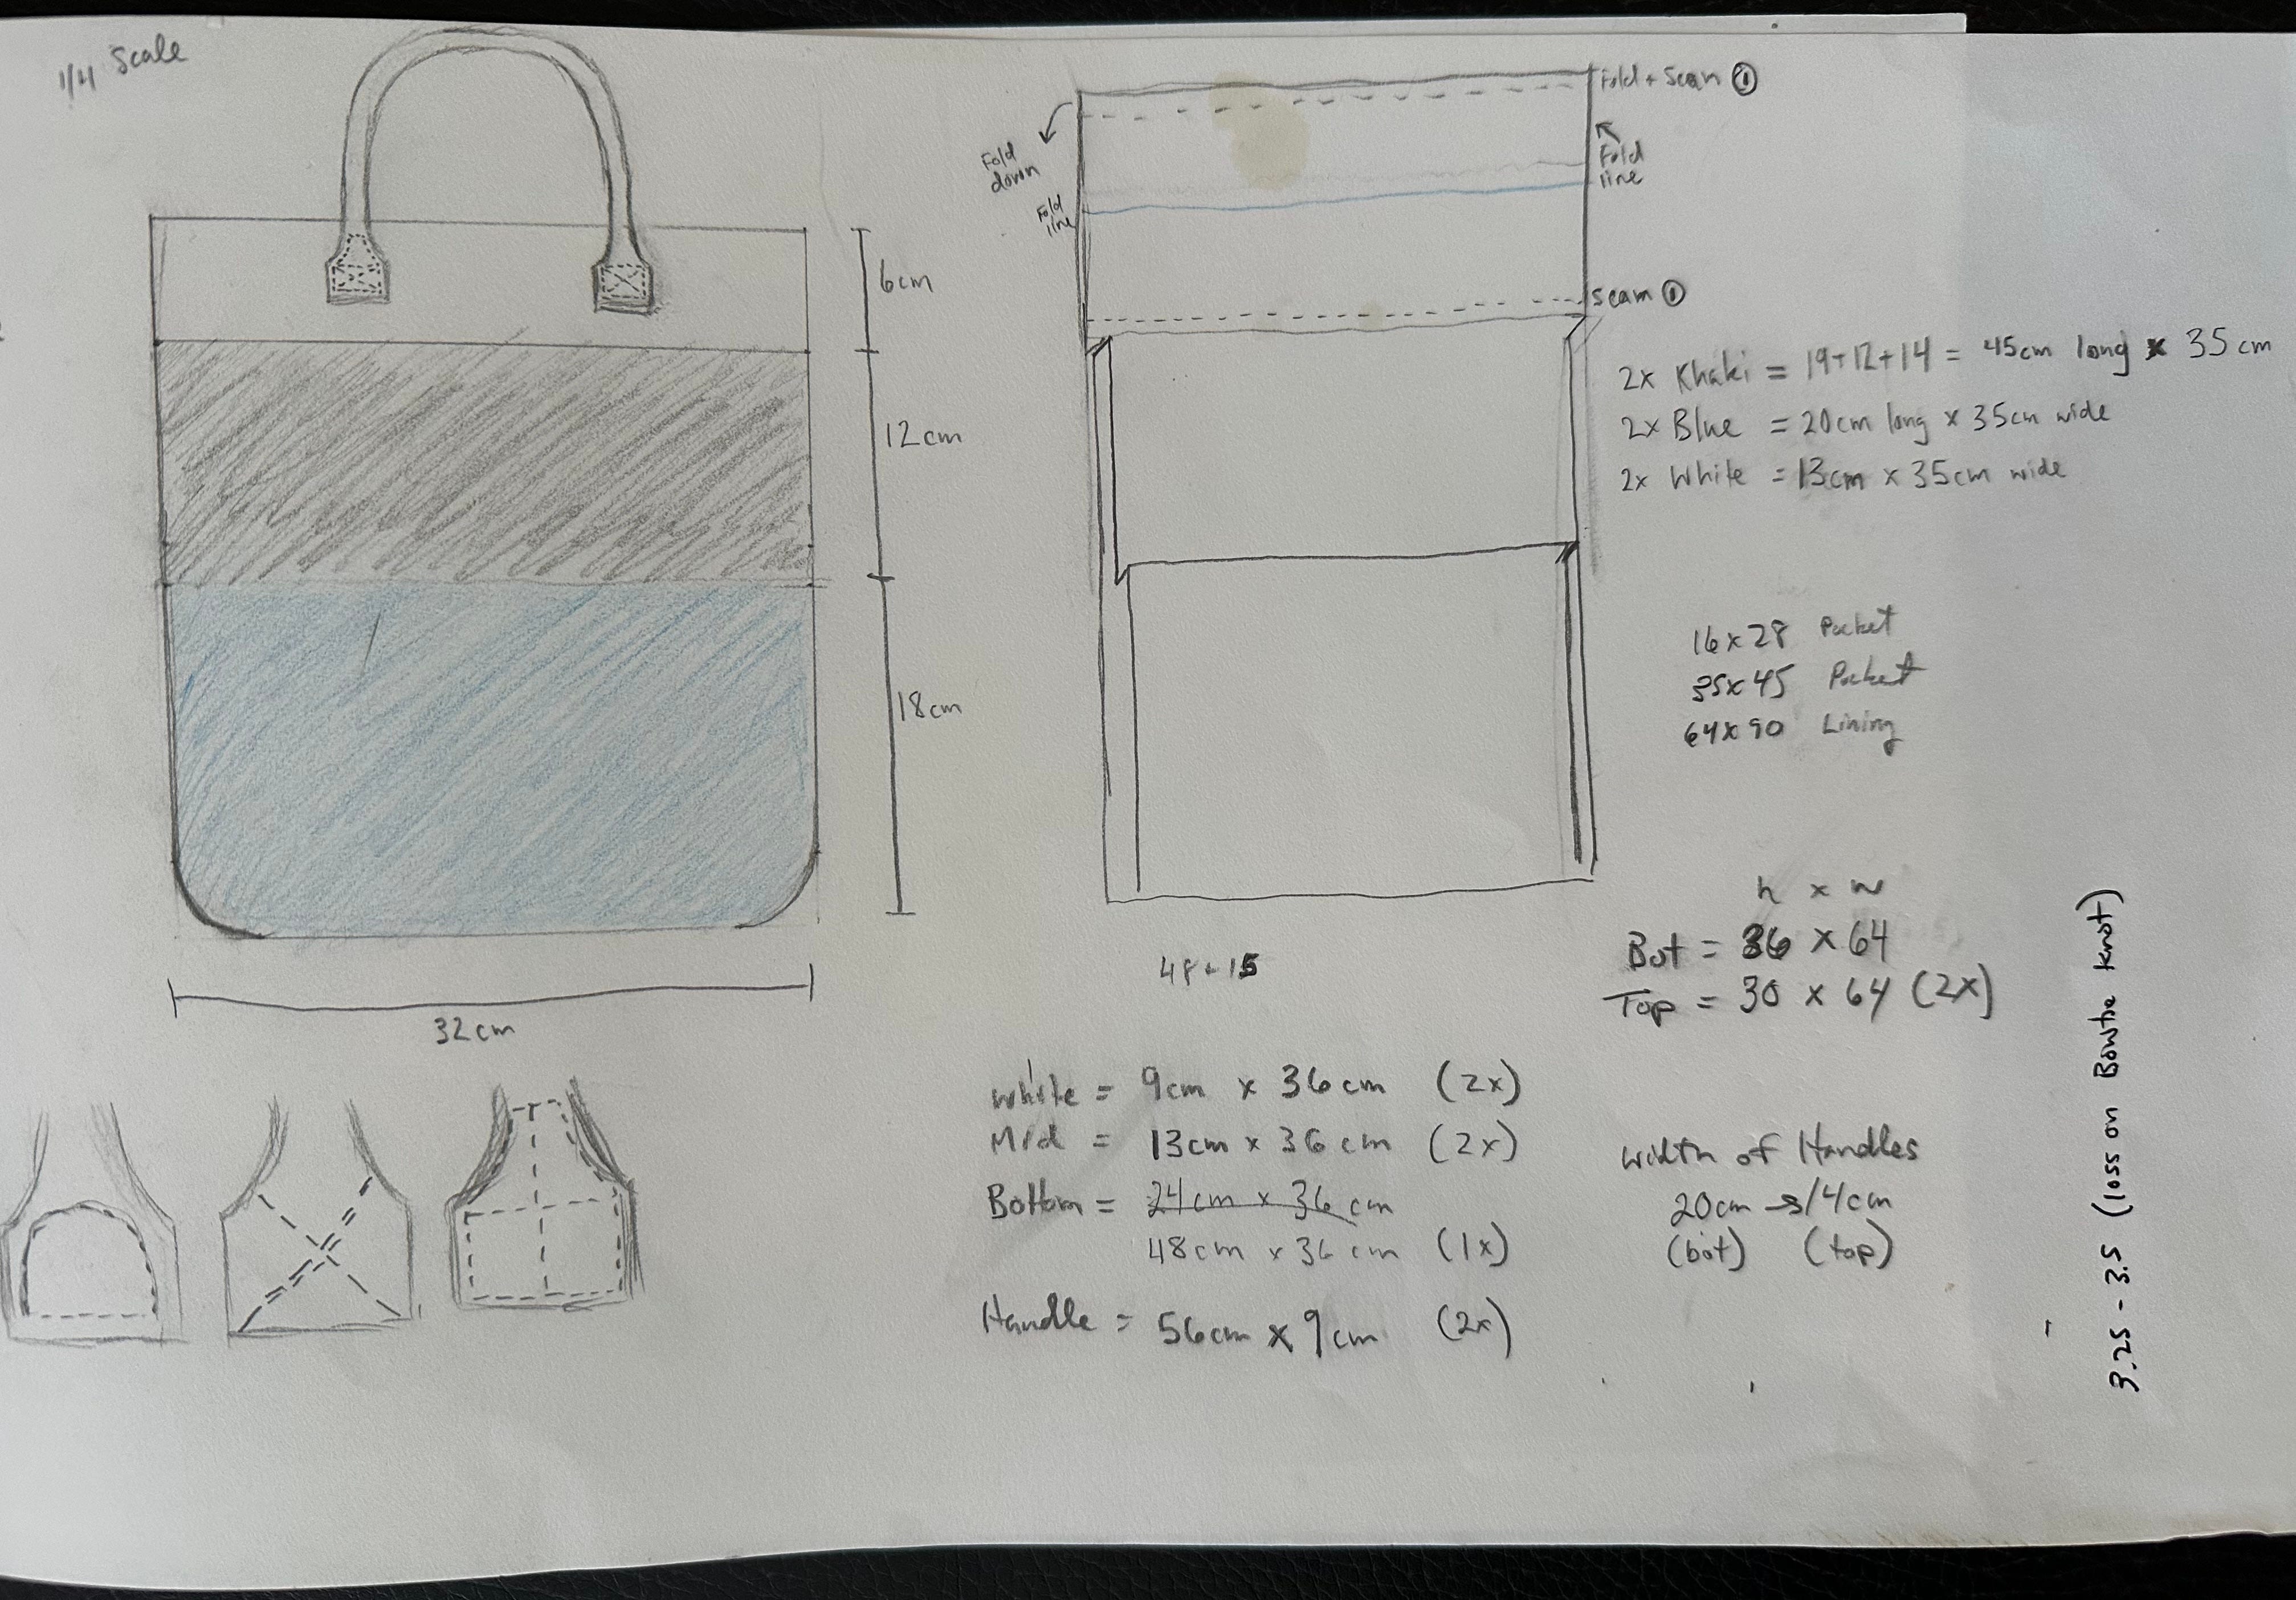 1/4 Scale
6cm
12cm
18cm
32cm
Fold
down
Fold
line
Fold + Seam ①
Fold
line
Seam ①
2x Khaki = 19+12+14 = 45cm long x 35cm
2x Blue = 20cm long x 35cm wide
2x White = 13cm x 35cm wide
16x28 Pocket
35x45 Pocket
64x90 Lining
h x w
Bot = 36 x 64
Top = 30 x 64 (2x)
48+15
White = 9cm x 36cm (2x)
Mid = 13cm x 36cm (2x)
Bottom = 24cm x 36cm
48cm x 36cm (1x)
Handle = 56cm x 9cm (2x)
width of Handles
20cm → 14cm
(bot) (top)
3.25 - 3.5 (loss on Bowtie knot)